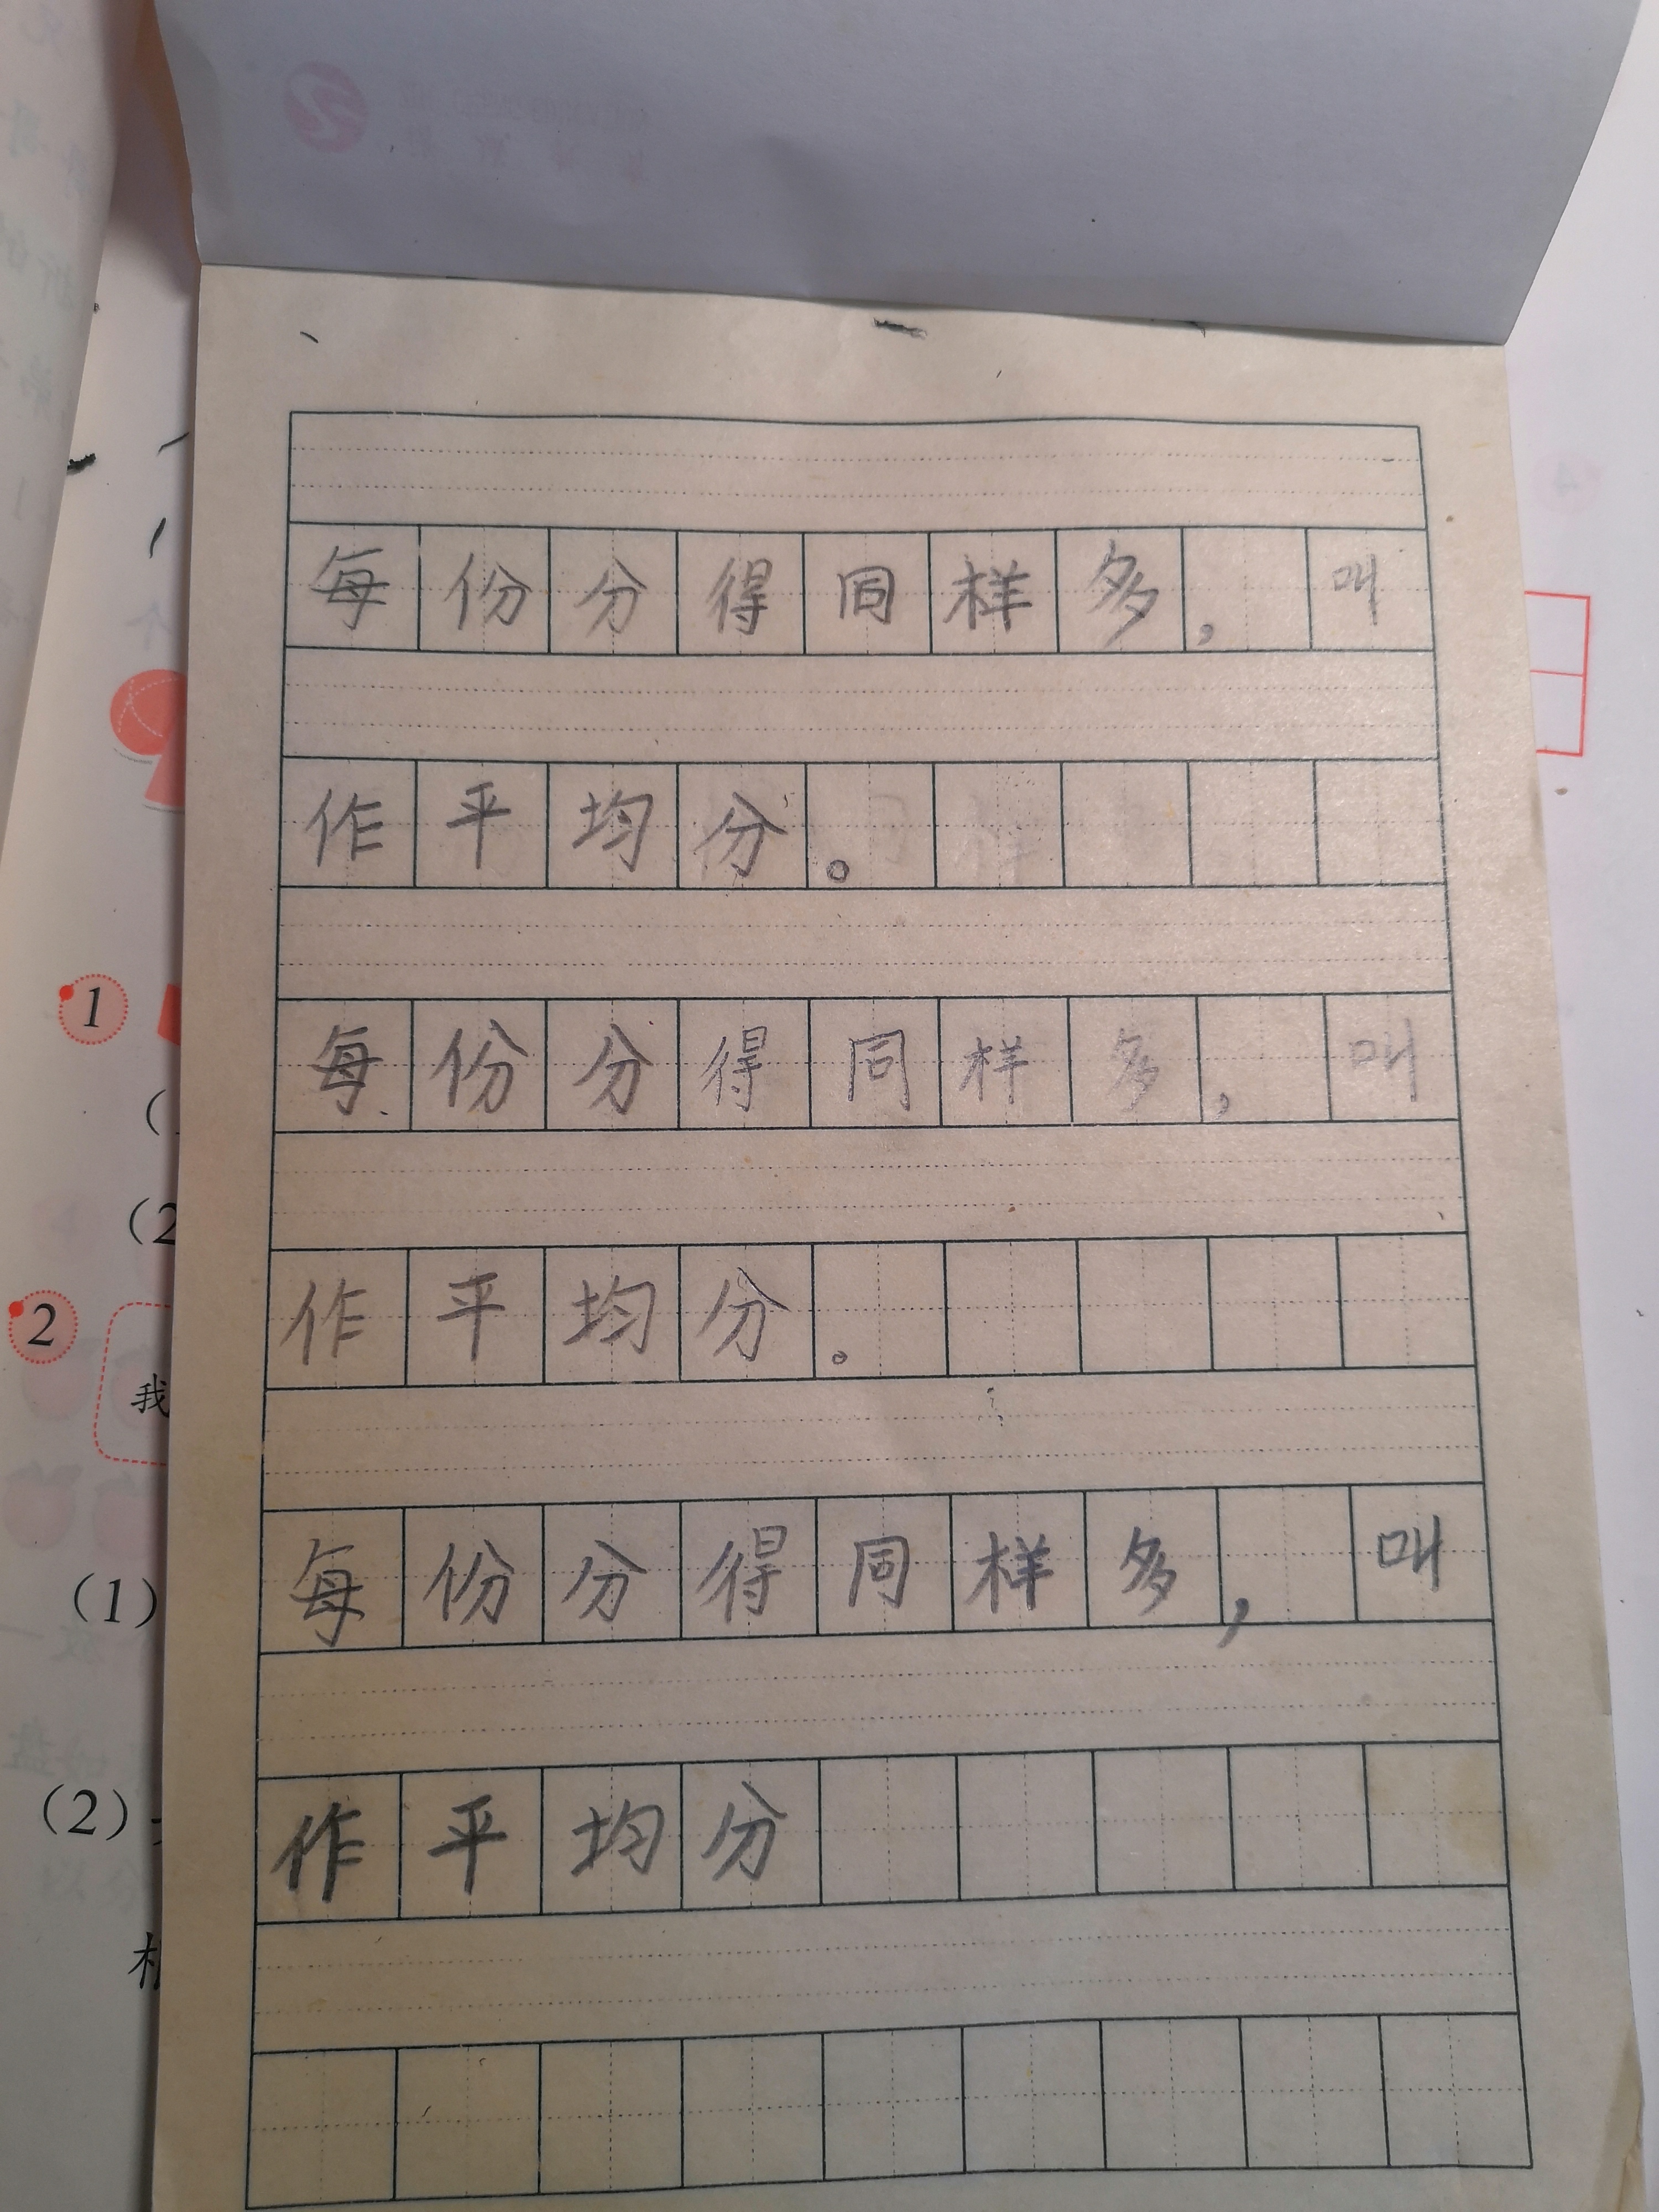 每份分得同样多,叫
作平均分。
每份分得同样多,叫
作平均分。
每份分得同样多,叫
作平均分
1
(2
2
我
(1)
(2)